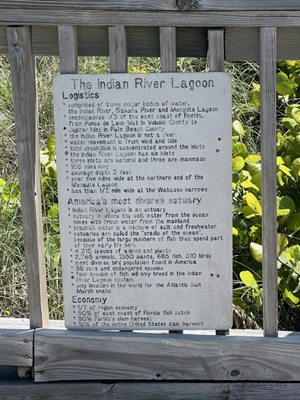 The Indian River Lagoon
Logistics
* comprised of three major bodies of water,
the Indian River, Banana River and Mosquito Lagoon
* encompasses 1/3 of the east coast of Florida,
from Ponce de Leon Inlet in Volusia County to
Jupiter Inlet in Palm Beach County
* the Indian River Lagoon is not a river
* water movement is from wind and tide
* tidal circulation is concentrated around the inlets
* the Indian River Lagoon has six inlets,
three inlets are natural and three are manmade
* 156 miles long
* average depth 3 feet
* over five miles wide at the northern end of the
Mosquito Lagoon
* less than 1/2 mile wide at the Wabasso narrows
America's most diverse estuary
* Indian River Lagoon is an estuary
* estuary is where the salt water from the ocean
mixes with fresh water from the mainland
* brackish water is a mixture of salt and freshwater
* estuaries are called the "cradle of the ocean",
because of the large numbers of fish that spend part
of their early life here
* 4,315 species of animal and plant
* 2,965 animals, 1350 plants, 685 fish, 310 birds
* most diverse bird population found in America
* 36 rare and endangered species
* four species of fish will only breed in the Indian
River Lagoon system
* only location in the world for the Atlantic Salt
Marsh snake
Economy
* 1/7 of region economy
* 50% of east coast of Florida fish catch
* 90% Florida's clam harvest
* 18% of the entire United States clam harvest